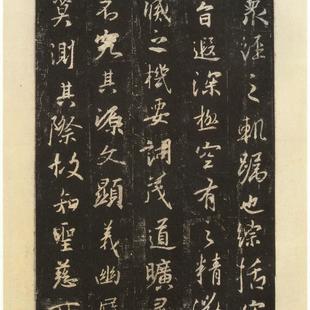 眾經之軌躅也綜括宏
旨遐深極空有之精微
滅之機要詞茂道曠尋
不究其源文顯義幽履
莫測其際故知聖慈所